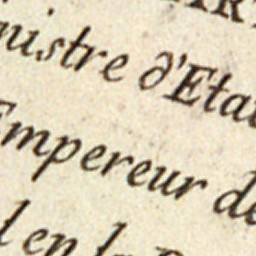 nistre d'Eta
Empereur de
l en la